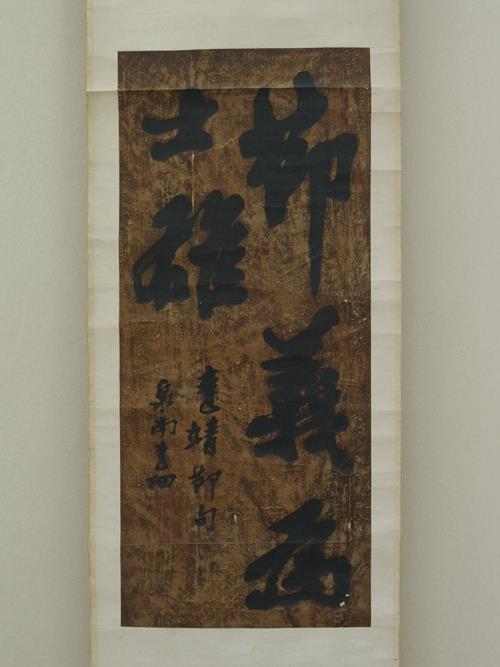 節義為
士雄
書靖節句
泉南